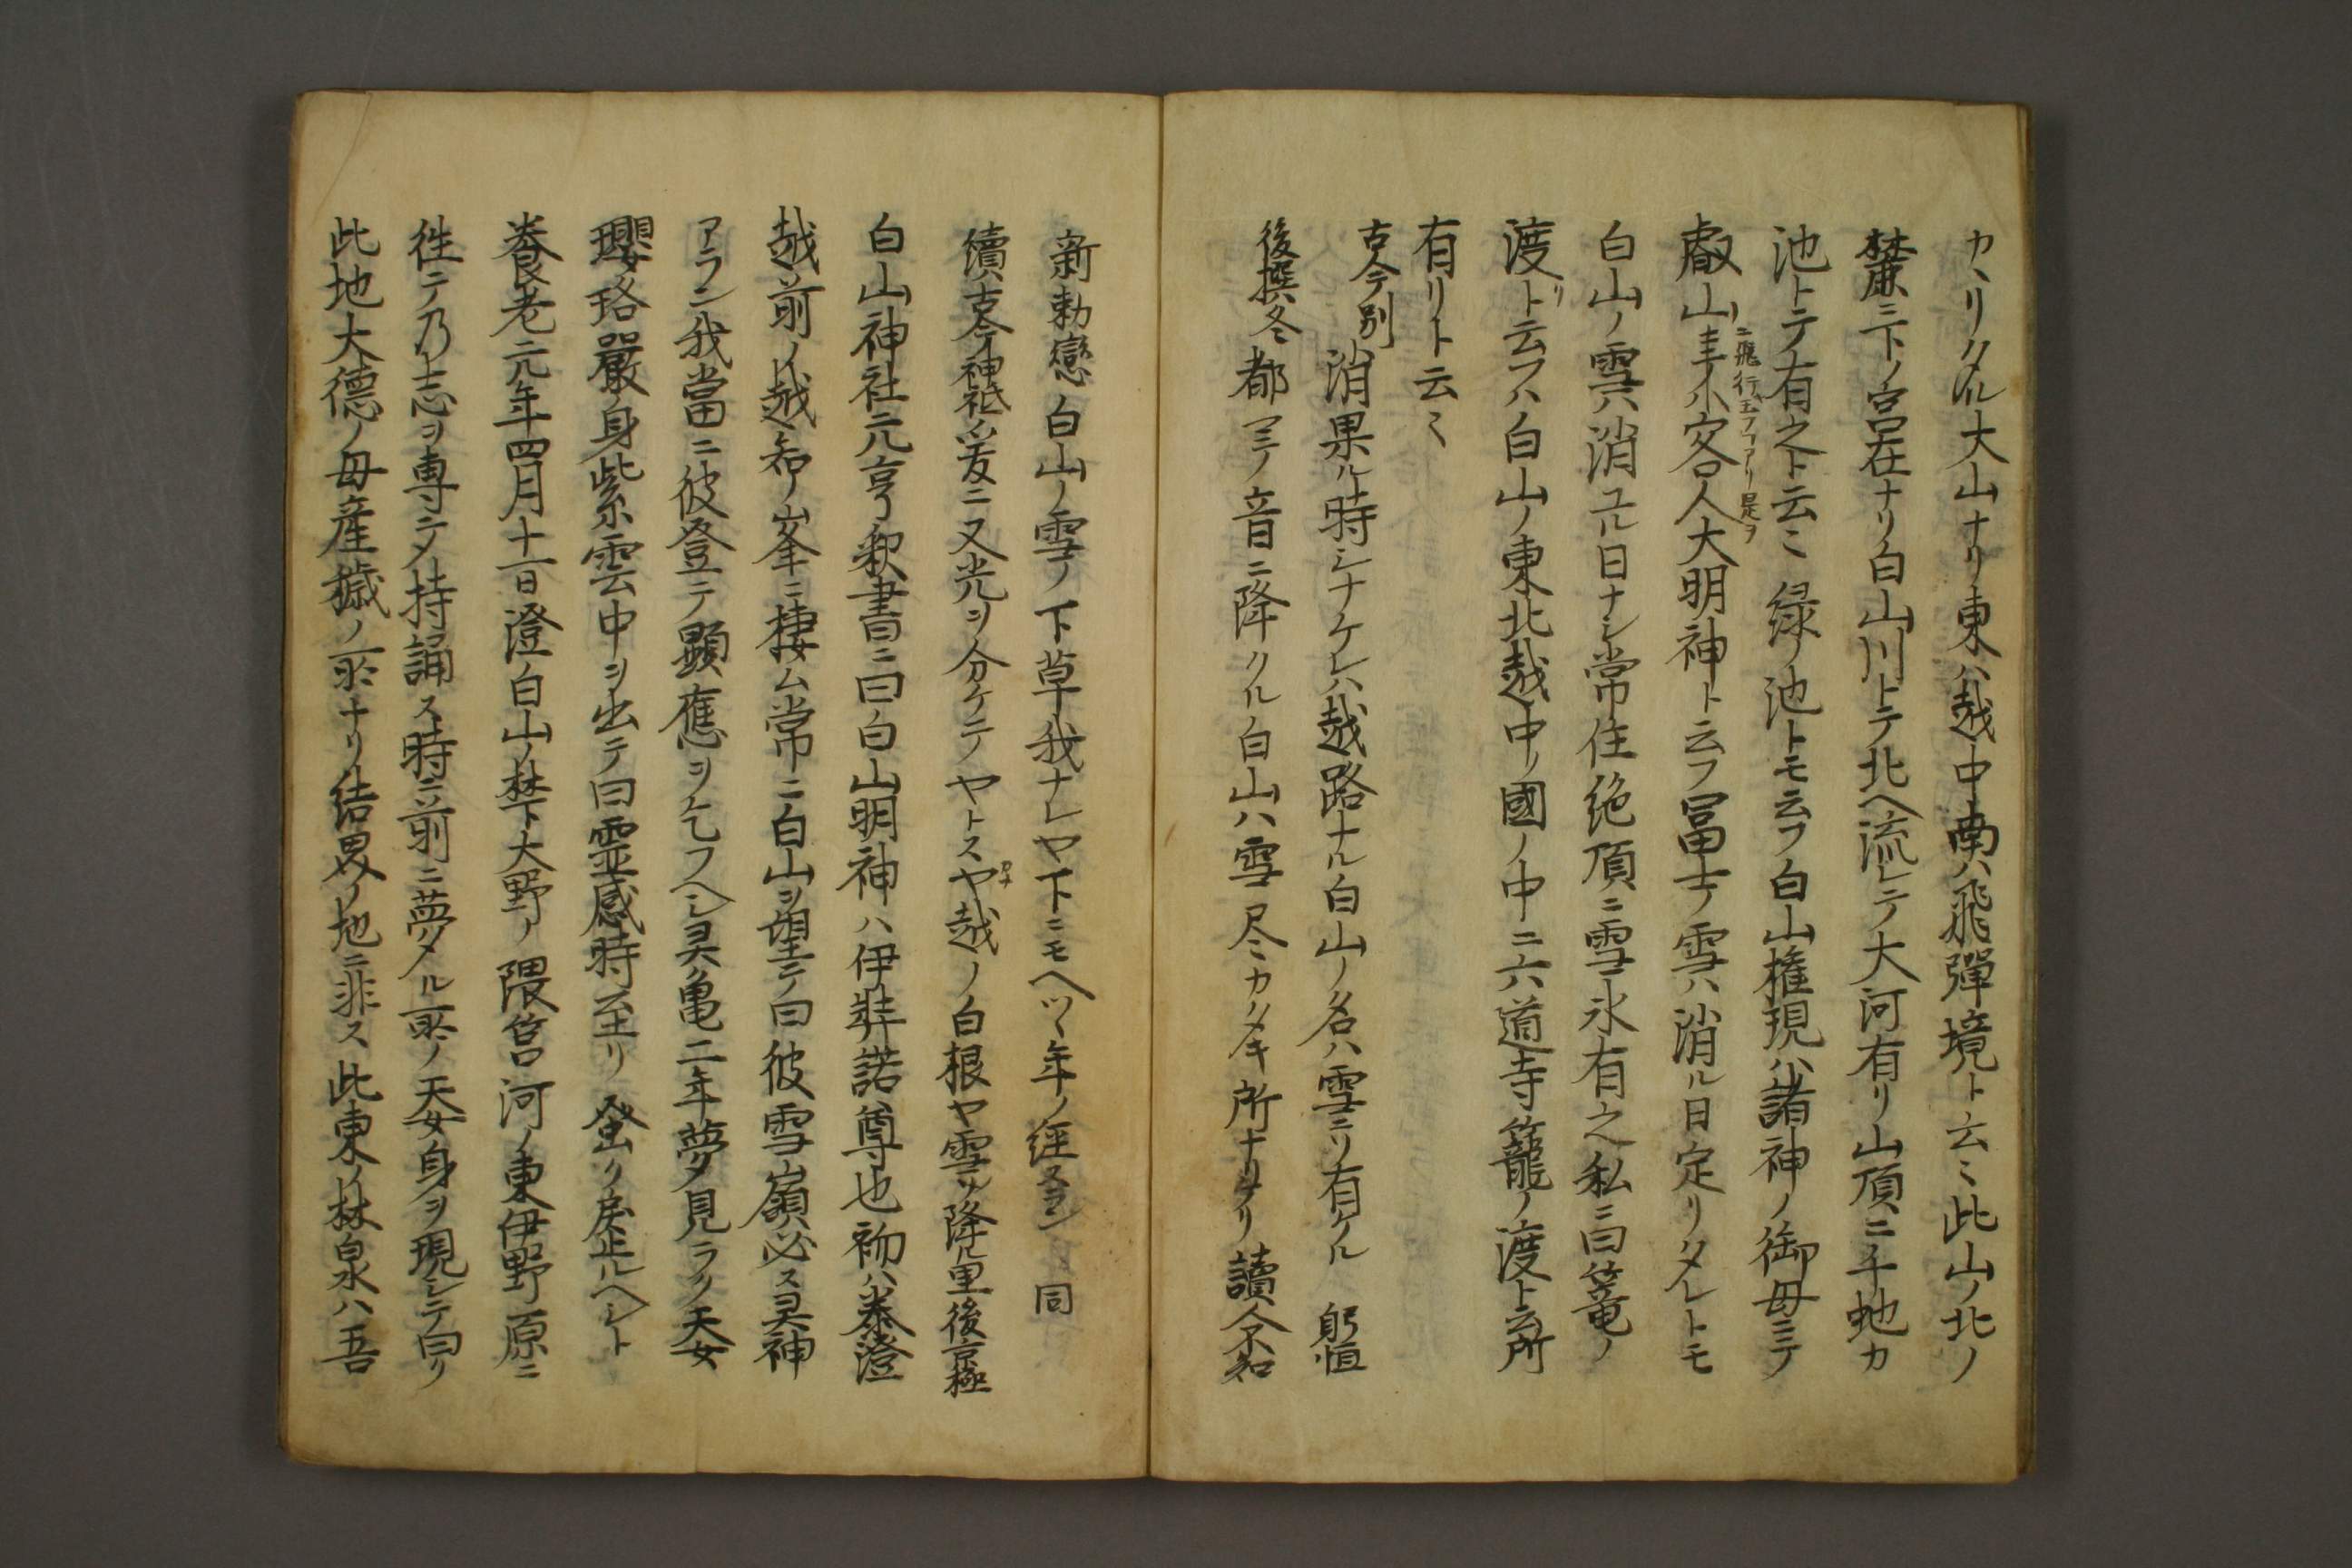 カヽリタル大山ナリ東ハ越中南ハ飛彈境ト云〻此山ノ北ノ
麓ニ下ノ宮在ナリ白山川トテ北ヘ流レテ大河有リ山頂ニ千蛇カ
池トテ有之ト云〻緑ノ池トモ云フ白山権現ハ諸神ノ御母ニテ
叡山ニ飛行玉フ事アリ是ヲ客人大明神ト云フ冨士ノ雪ハ消ル日定リタレトモ
白山ノ雪ハ消ユル日ナシ常住絶頂ニ雪氷有之私ニ曰篭ノ
渡リト云フハ白山ノ東北越中ノ國ノ中ニ六道寺籠ノ渡ト云所
有リト云〻
古今別 消果ル時シナケレハ越路ナル白山ノ名ハ雪ニソ有ケル 躬恒
後撰冬 都マテ音ニ降クル白山ハ雪尽カタキ所ナリケリ 讀人不知
新勅戀 白山ノ雪ノ下草我ナレヤ下ニモヘツヽ年ノ経ヌラン 同
續古今神祇 爰ニ又光ヲ分ケテヤトスヤ越ノ白根ヤ雪ノ降里 後京極
白山神社元亨釈書ニ曰白山明神ハ伊弉諾尊也初ハ泰澄
越前ノ越知ノ峯ニ棲ム常ニ白山ヲ望テ曰彼雪嶺必ス灵神
アラン我當ニ彼登テ顕應ヲ乞フヘシ灵亀二年夢見ラク天女
瓔珞嚴身紫雲中ヲ出テ曰霊感時至リ 戻止ルヘシト
養老元年四月十一日澄白山ノ麓下大野ノ隈筥河ノ東伊野原ニ
徃テ乃志ヲ専ニメ持誦ス時ニ前ニ夢タル所ノ天女身ヲ現シテ曰ク
此地大德ノ母産穢ノ所ナリ結界ノ地ニ非ス此東ノ林泉ハ吾